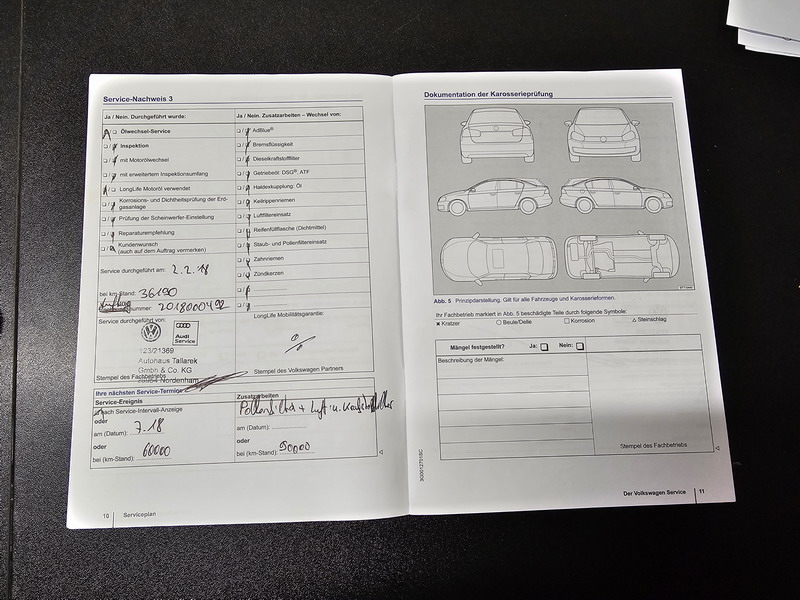 Service-Nachweis 3
Ja / Nein. Durchgeführt wurde:
Ölwechsel-Service
Inspektion
mit Motorölwechsel
mit erweitertem Inspektionsumfang
LongLife Motoröl verwendet
Korrosions- und Dichtheitsprüfung der Erd-
gasanlage
Prüfung der Scheinwerfer-Einstellung
Reparaturempfehlung
Kundenwunsch
(auch auf dem Auftrag vermerken)
Service durchgeführt am: 2.2.18
bei km-Stand: 36190
nummer: 201800049
Service durchgeführt von:
Audi
Service
123/21369
Autohaus Tallarek
GmbH & Co. KG
Nordenham
Stempel des Fachbetriebs
Ja / Nein. Zusatzarbeiten – Wechsel von:
AdBlue®
Bremsflüssigkeit
Dieselkraftstofffilter
Getriebeöl: DSG®, ATF
Haldexkupplung: Öl
Keilrippenriemen
Luftfiltereinsatz
Reifenfüllflasche (Dichtmittel)
Staub- und Pollenfiltereinsatz
Zahnriemen
Zündkerzen
LongLife Mobilitätsgarantie:
Stempel des Volkswagen Partners
Ihre nächsten Service-Termine
Service-Ereignis
nach Service-Intervall-Anzeige
oder
am (Datum): 7.18
oder
bei (km-Stand): 60000
Zusatzarbeiten
Pollenfilter + Luft u. Kraftstofffilter
am (Datum):
bei (km-Stand): 90000
10 Serviceplan
Dokumentation der Karosserieprüfung
Abb. 5 Prinzipdarstellung. Gilt für alle Fahrzeuge und Karosserieformen.
Ihr Fachbetrieb markiert in Abb. 5 beschädigte Teile durch folgende Symbole:
× Kratzer ○ Beule/Delle □ Korrosion △ Steinschlag
Mängel festgestellt? Ja: □ Nein: □
Beschreibung der Mängel:
Stempel des Fachbetriebs
Der Volkswagen Service 11